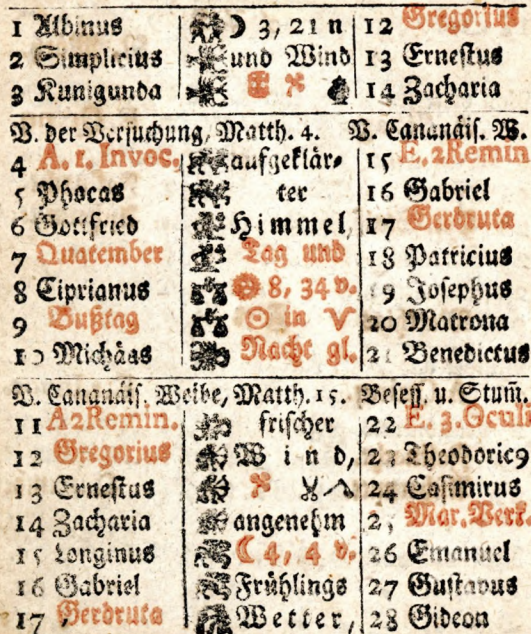 1 Albinus ☽ 3, 21 n 12 Gregorius
2 Simplicius und Wind 13 Ernestus
3 Kunigunda 14 Zacharia
V. der Versuchung, Matth. 4. V. Cananäis. W.
4 A. 1. Invoc. aufgeklär- 15 E. 2 Remin
5 Phocas ter 16 Gabriel
6 Gottfried Himmel, 17 Gerdruta
7 Quatember Tag und 18 Patricius
8 Ciprianus 8, 34 v. 19 Josephus
9 Bußtag ☉ in ♈ 20 Matrona
10 Michäas Nacht gl. 21 Benedictus
V. Cananäis. Weibe, Matth. 15. Besess. u. Stum̃.
11 A 2 Remin. frischer 22 E. 3. Oculi
12 Gregorius Wind, 23 Theodoric9
13 Ernestus 24 Casimirus
14 Zacharia angenehm 25 Mar. Verk.
15 Longinus ☾ 4, 4 v. 26 Emanuel
16 Gabriel Frühlings 27 Gustavus
17 Gerdruta Wetter, 28 Gideon